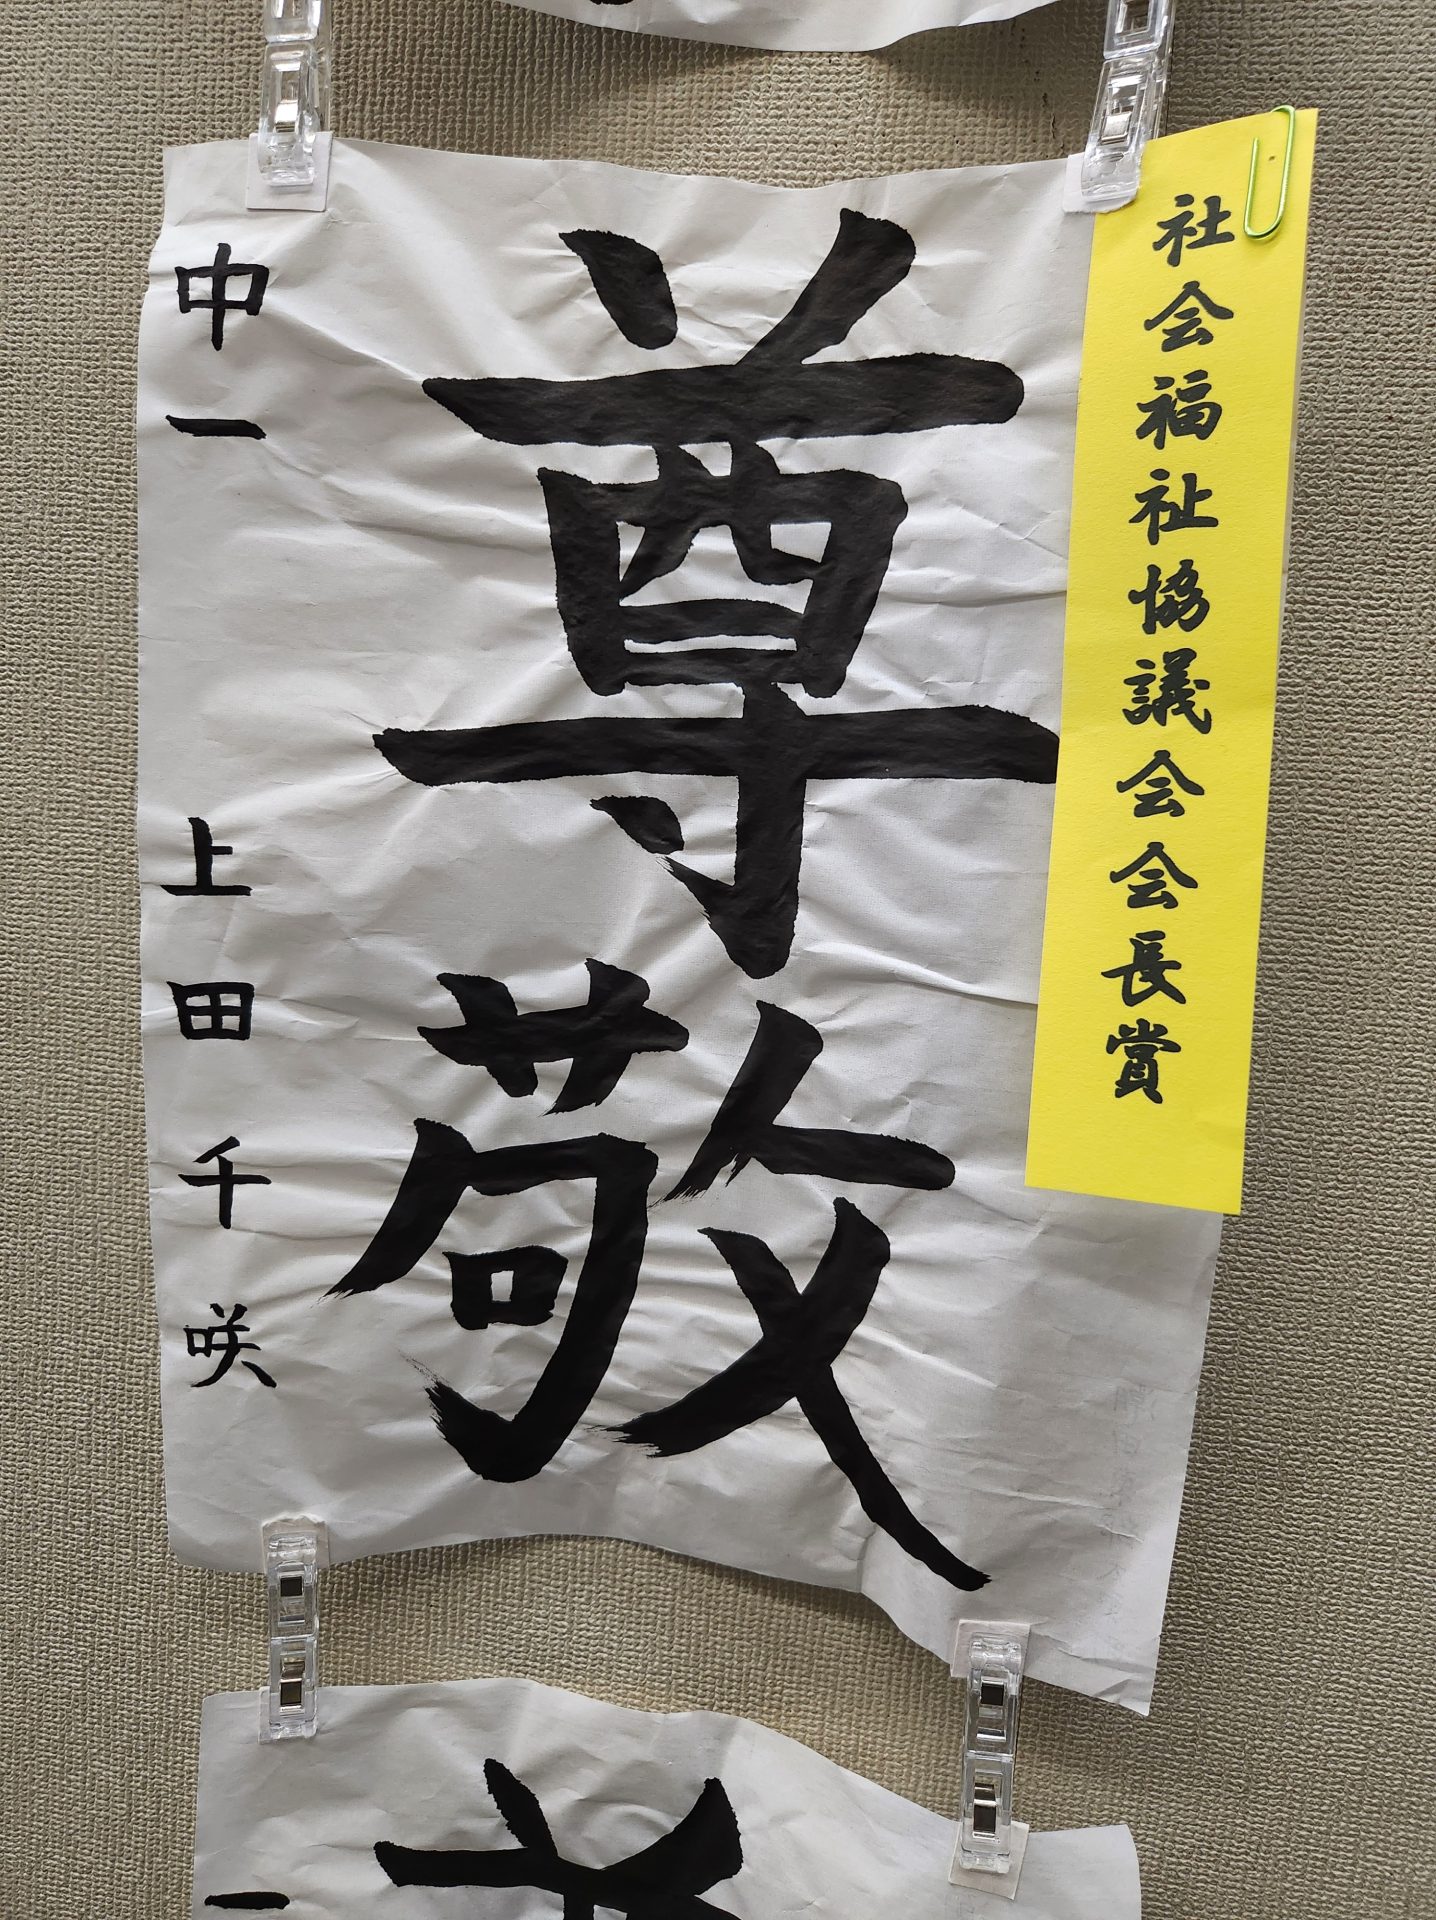 社会福祉協議会会長賞
尊敬
中一 上田千咲
一